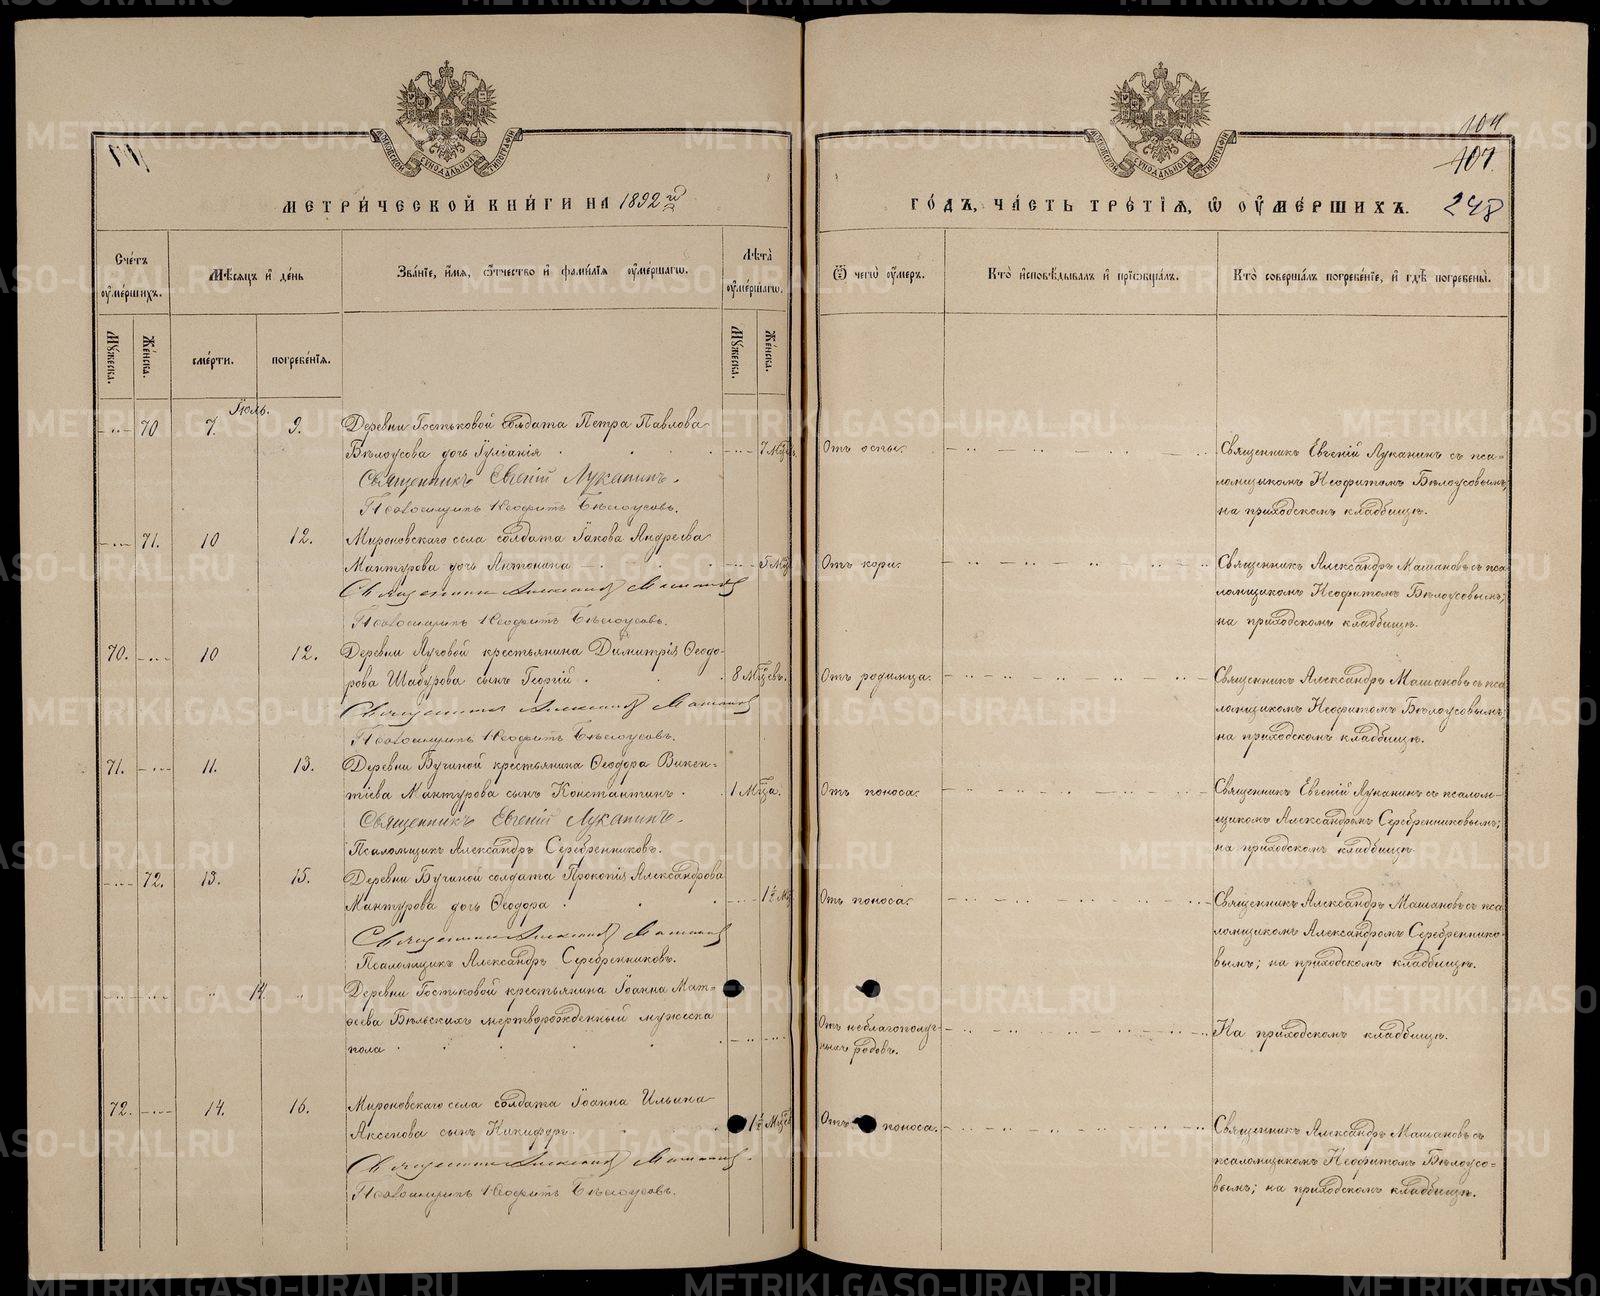 МЕТРИ́ЧЕСКОЙ КНИ́ГИ НА 1892 й
Счéтъ ᲂу҆мéршихъ.
Мѣ́сяцъ и҆ дéнь
Звáніе, и҆́мя, ѻ҆́тчество и҆ фамúлія ᲂу҆мéршагѡ.
Лѣ́та ᲂу҆мéршагѡ.
Мꙋ́жеска.
Жéнска.
смéрти.
погребéнія.
Мꙋ́жеска.
Жéнска.
Іюль.
70 7. 9. Деревни Гостьковой солдата Петра Павлова
Бѣлоусова дочь Іуліанія 7 Мцев.
Священникъ Евгеній Луканинъ.
Псаломщикъ Неофитъ Бѣлоусовъ.
71. 10 12. Мироновскаго села солдата Іакова Андреева
Мантурова дочь Антонина 5 Мц
Священникъ Александръ Машановъ
Псаломщикъ Неофитъ Бѣлоусовъ.
70. 10 12. Деревни Луговой крестьянина Димитрія Ѳеодо-
рова Шабурова сынъ Георгій 8 Мцевъ.
Священникъ Александръ Машановъ
Псаломщикъ Неофитъ Бѣлоусовъ.
71. 11. 13. Деревни Бучиной крестьянина Ѳеодора Викен-
тіева Мантурова сынъ Константинъ 1 Мца.
Священникъ Евгеній Луканинъ.
Псаломщикъ Александръ Серебренниковъ.
72. 13. 15. Деревни Бучиной солдата Прокопія Александрова
Мантурова дочь Ѳеодора 1½ Мц
Священникъ Александръ Машановъ
Псаломщикъ Александръ Серебренниковъ.
14. Деревни Гостьковой крестьянина Іоанна Мат-
ѳеева Бѣльскихъ мертворожденный мужеска
пола
72. 14. 16. Мироновскаго села солдата Іоанна Ильина
Аксенова сынъ Никифоръ 1½ Мцев
Священникъ Александръ Машановъ
Псаломщикъ Неофитъ Бѣлоусовъ.
104
107.
ГÓДЪ, ЧÁСТЬ ТРÉТІѦ, Ѡ҆ ОУ҆МÉРШИХЪ. 248
Ѿ чегѡ̀ ᲂу҆́меръ.
Ктò и҆сповѣ́дывалъ и҆ пріѻбщáлъ.
Ктò совершáлъ погребéніе, и҆ гдѣ̀ погребены̀.
Отъ оспы.
Священникъ Евгеній Луканинъ съ пса-
ломщикомъ Неофитомъ Бѣлоусовымъ;
на приходскомъ кладбищѣ.
Отъ кори.
Священникъ Александръ Машановъ съ пса-
ломщикомъ Неофитомъ Бѣлоусовымъ;
на приходскомъ кладбищѣ.
Отъ родимца.
Священникъ Александръ Машановъ съ пса
ломщикомъ Неофитомъ Бѣлоусовымъ;
на приходскомъ кладбищѣ.
Отъ поноса.
Священникъ Евгеній Луканинъ съ псалом-
щикомъ Александромъ Серебренниковымъ;
на приходскомъ кладбищѣ.
Отъ поноса.
Священникъ Александръ Машановъ съ пса
ломщикомъ Александромъ Серебреннико-
вымъ; на приходскомъ кладбищѣ.
Отъ неблагополуч-
ныхъ родовъ.
На приходскомъ кладбищѣ.
Отъ поноса.
Священникъ Александръ Машановъ съ
псаломщикомъ Неофитомъ Бѣлоусо-
вымъ; на приходскомъ кладбищѣ.
METRIKI.GASO-URAL.RU